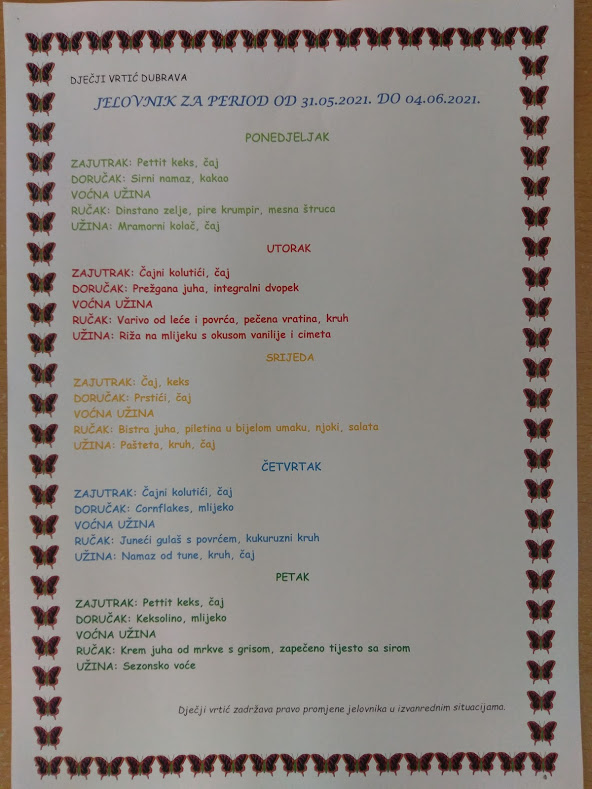 DJEČJI VRTIĆ DUBRAVA
JELOVNIK ZA PERIOD OD 31.05.2021. DO 04.06.2021.
PONEDJELJAK
ZAJUTRAK: Pettit keks, čaj
DORUČAK: Sirni namaz, kakao
VOĆNA UŽINA
RUČAK: Dinstano zelje, pire krumpir, mesna štruca
UŽINA: Mramorni kolač, čaj
UTORAK
ZAJUTRAK: Čajni kolutići, čaj
DORUČAK: Prežgana juha, integralni dvopek
VOĆNA UŽINA
RUČAK: Varivo od leće i povrća, pečena vratina, kruh
UŽINA: Riža na mlijeku s okusom vanilije i cimeta
SRIJEDA
ZAJUTRAK: Čaj, keks
DORUČAK: Prstići, čaj
VOĆNA UŽINA
RUČAK: Bistra juha, piletina u bijelom umaku, njoki, salata
UŽINA: Pašteta, kruh, čaj
ČETVRTAK
ZAJUTRAK: Čajni kolutići, čaj
DORUČAK: Cornflakes, mlijeko
VOĆNA UŽINA
RUČAK: Juneći gulaš s povrćem, kukuruzni kruh
UŽINA: Namaz od tune, kruh, čaj
PETAK
ZAJUTRAK: Pettit keks, čaj
DORUČAK: Keksolino, mlijeko
VOĆNA UŽINA
RUČAK: Krem juha od mrkve s grisom, zapečeno tijesto sa sirom
UŽINA: Sezonsko voće
Dječji vrtić zadržava pravo promjene jelovnika u izvanrednim situacijama.